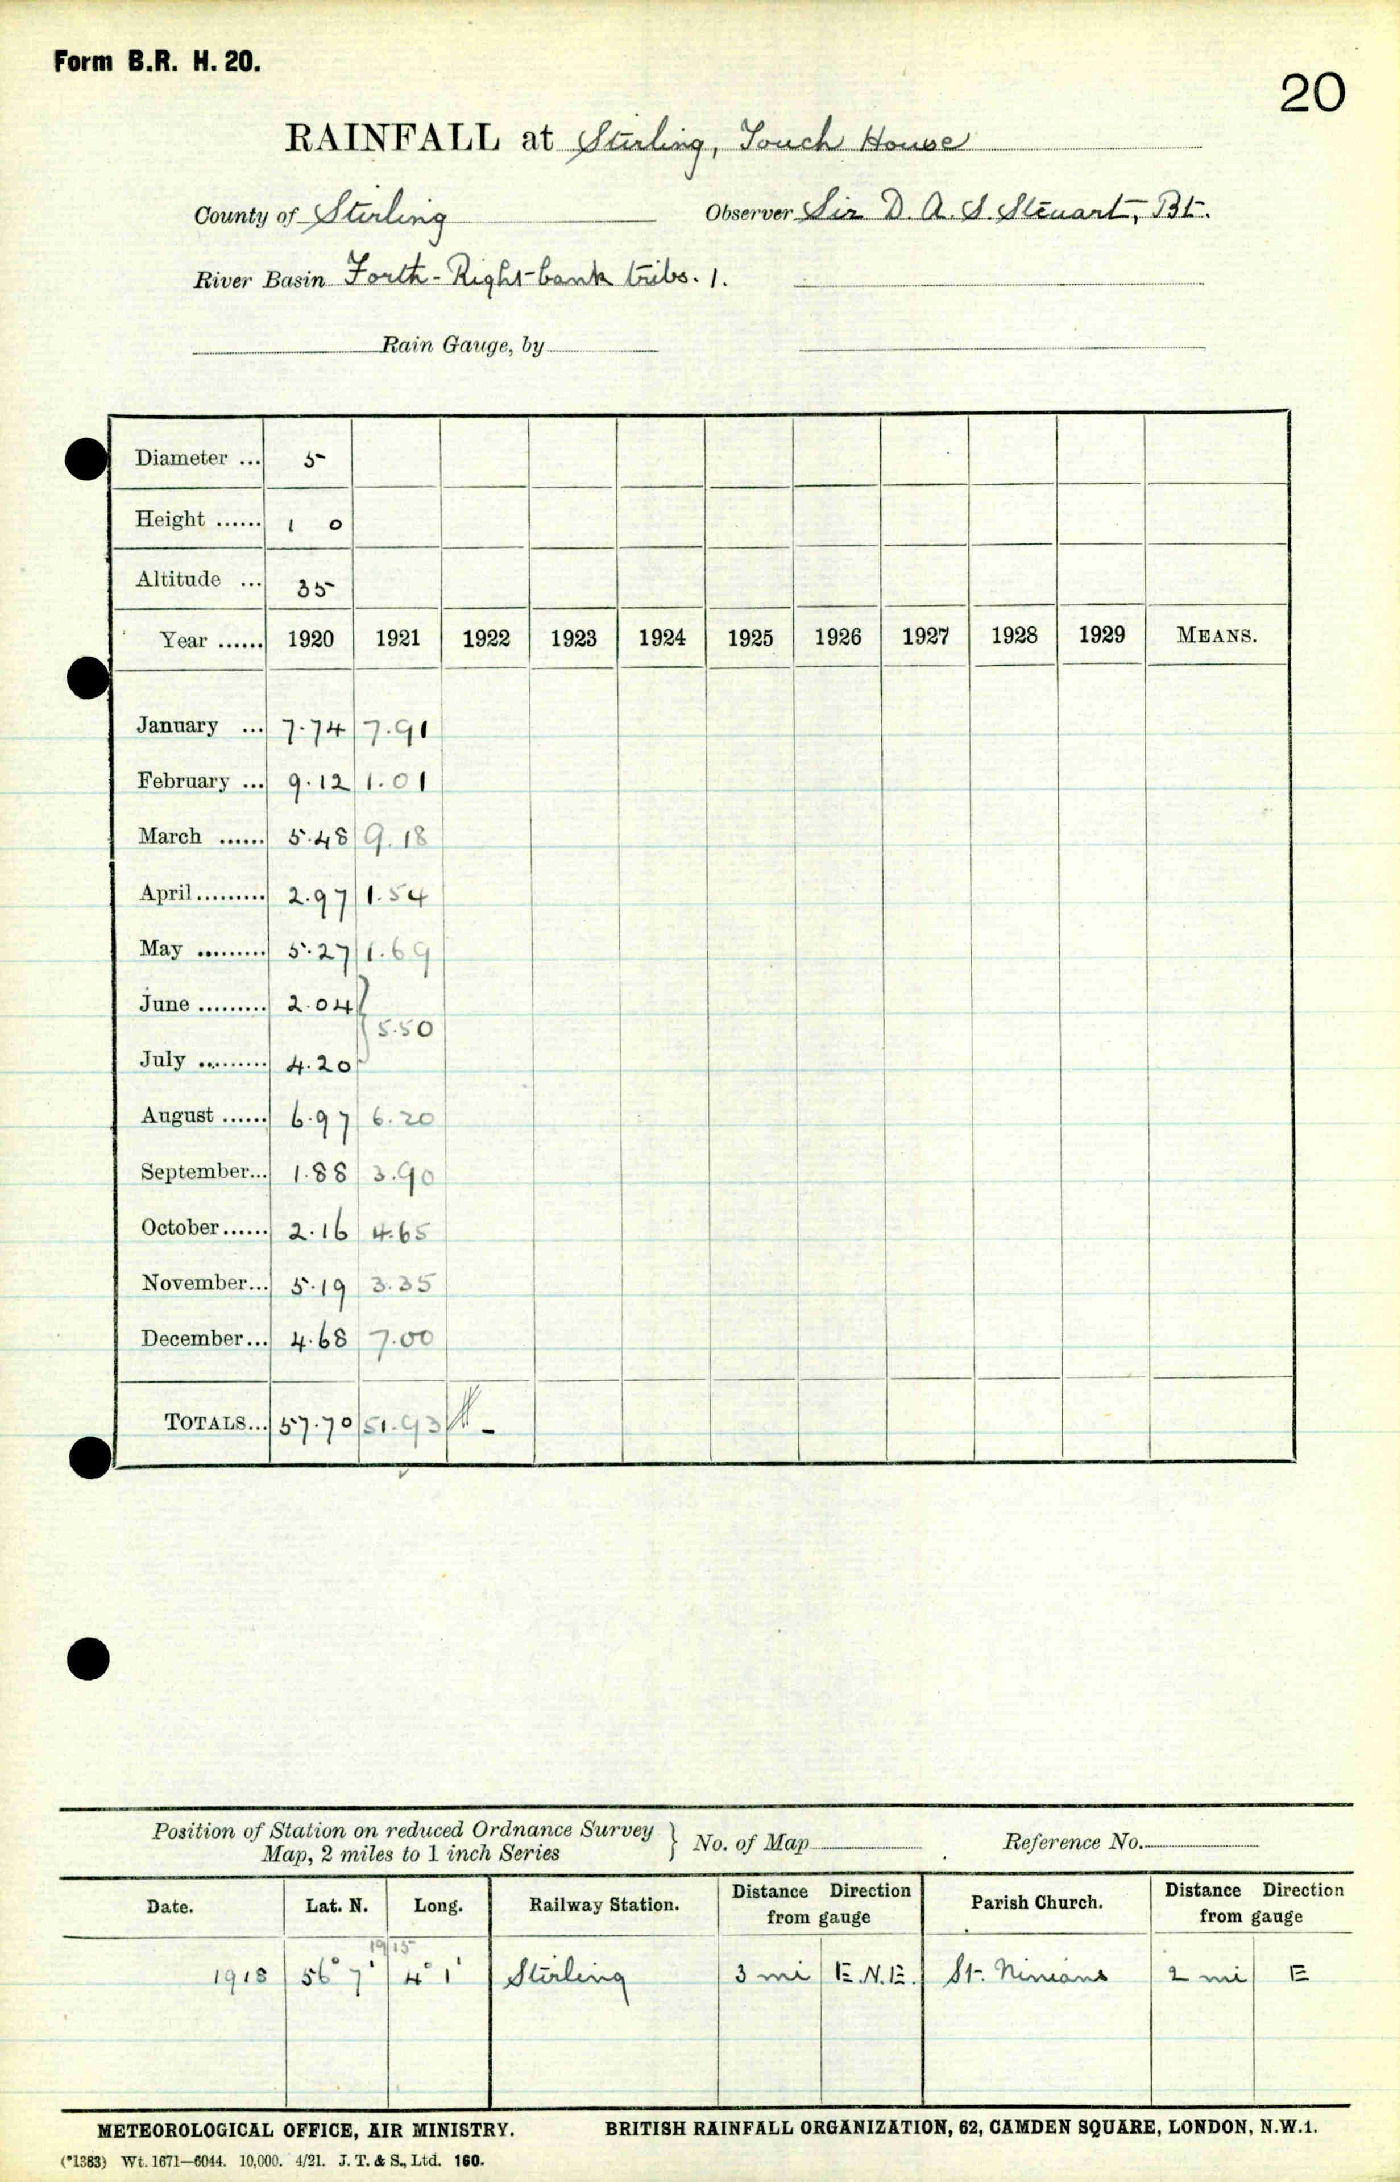 Form B.R. H. 20.
20
RAINFALL at Stirling, Touch House
County of Stirling Observer Sir D. A. S. Steuart, Bt.
River Basin Forth - Right-bank tribs. 1.
Rain Gauge, by
Diameter ... 5
Height ...... 1 0
Altitude ... 35
Year ...... 1920 1921 1922 1923 1924 1925 1926 1927 1928 1929 MEANS.
January ... 7.74 7.91
February ... 9.12 1.01
March ...... 5.48 9.18
April......... 2.97 1.54
May ......... 5.27 1.69
June ......... 2.04 }
5.50
July ......... 4.20
August ...... 6.97 6.20
September... 1.88 3.90
October...... 2.16 4.65
November... 5.19 3.35
December... 4.68 7.00
TOTALS... 57.70 51.93 -
Position of Station on reduced Ordnance Survey
Map, 2 miles to 1 inch Series } No. of Map Reference No.
Date. Lat. N. Long. Railway Station. Distance Direction from gauge Parish Church. Distance Direction from gauge
19 15
1918 56° 7' 4° 1' Stirling 3 mi E.N.E. St. Ninians 2 mi E
METEOROLOGICAL OFFICE, AIR MINISTRY. BRITISH RAINFALL ORGANIZATION, 62, CAMDEN SQUARE, LONDON, N.W.1.
(*1383) Wt. 1671—6044. 10,000. 4/21. J. T. & S., Ltd. 160.